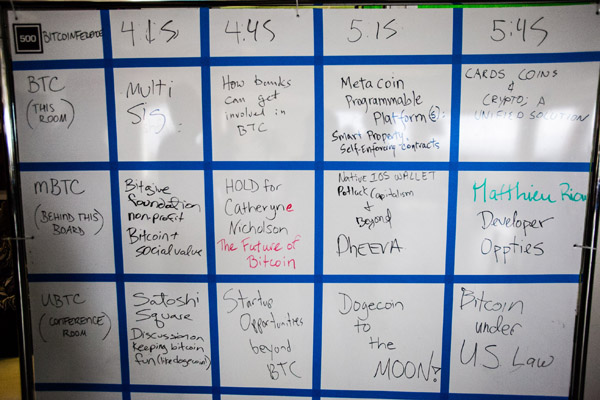 500 BITCOINFERENCE
4:15
4:45
5:15
5:45
BTC
(THIS
ROOM)
Multi
Sig
How banks
can get
involved in
BTC
Metacoin
Programmable
Platform(s):
Smart Property,
Self-Enforcing Contracts
CARDS COINS
&
CRYPTO: A
UNIFIED SOLUTION
mBTC
(BEHIND THIS
BOARD)
Bitgive
foundation
non-profit
Bitcoin +
social value
HOLD for
Catheryne
Nicholson
The Future of
Bitcoin
Native IOS WALLET
Potluck Capitalism
&
Beyond
PHEEVA
Matthieu
Developer
Oppties
UBTC
(CONFERENCE
ROOM)
Satoshi
Square
Discussion on
keeping bitcoin
fun (like dogecoin)
Startup
Opportunities
beyond
BTC
Dogecoin
to
the
MOON!
Bitcoin
under
U.S. Law